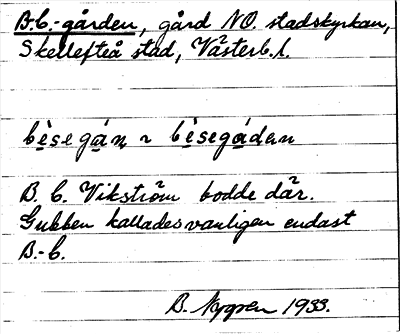 B.C.-gården, gård NO. stadskyrkan,
Skellefteå stad, Västerb. l.
bèsegán ~ bèsegáden
B. C. Vikström bodde där.
Gubben kallades vanligen endast
B.-C.
B. Nygren 1933.